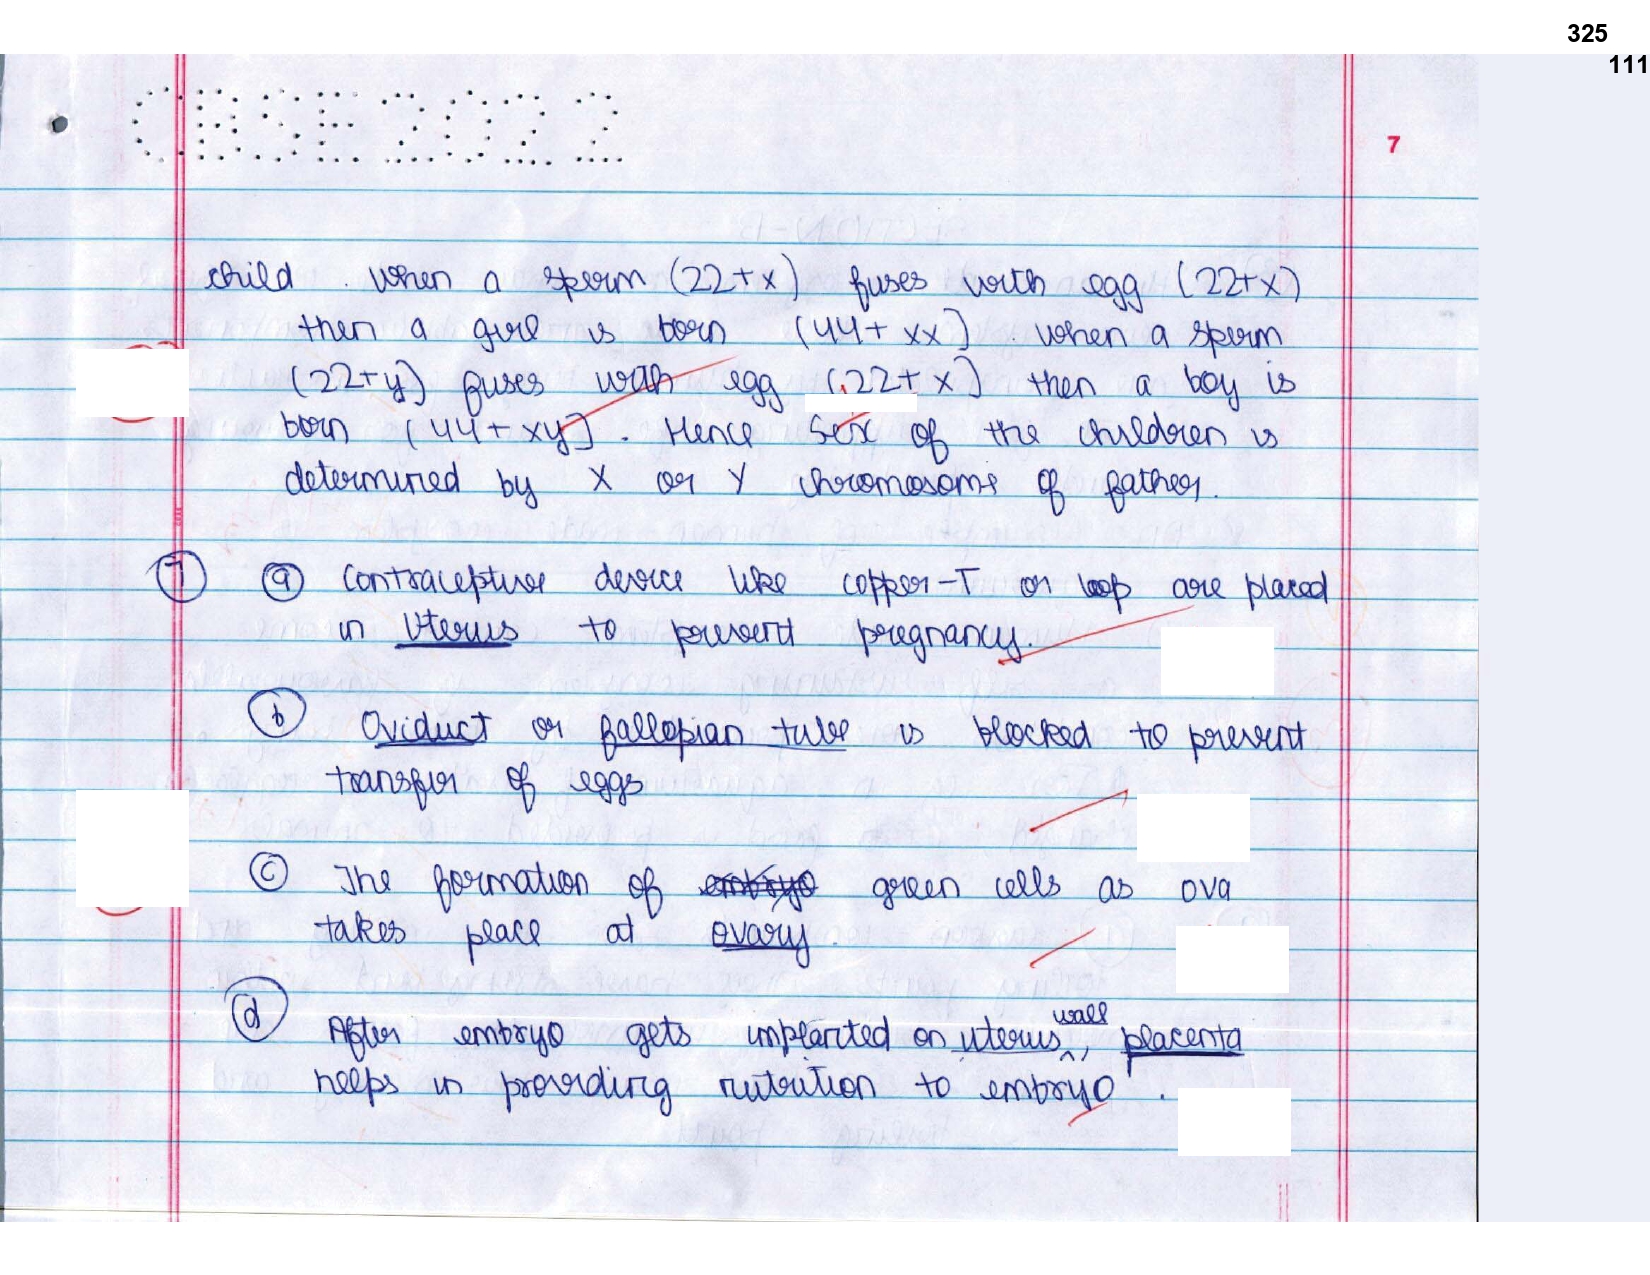 325
111
CBSE 2022
7
child. When a sperm (22+x) fuses with egg (22+x)
then a girl is born (44+ xx). When a sperm
(22+y) fuses with egg (22+x) then a boy is
born (44+xy). Hence Sex of the children is
determined by X or Y chromosome of father.
7 a Contraceptive device like copper-T or loop are placed
in Uterus to prevent pregnancy.
b Oviduct or fallopian tube is blocked to prevent
transfer of eggs
c The formation of embryo green cells as ova
takes place at ovary.
d After embryo gets implanted on uterus wall, placenta
helps in providing nutrition to embryo.